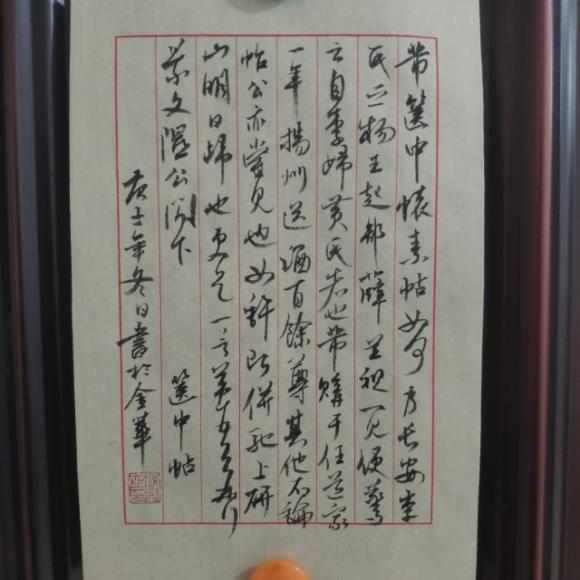 芾篋中懷素帖如何乃長安李
氏之物王起部薛道祖一見便驚
云自李歸黃氏者也芾購于任道家
一年揚州送酒百餘尊其他不論
帖公亦嘗見也如許即併馳上研
山明日歸也更乞一言芾
景文隰公閣下 篋中帖
庚子年冬日書於金華